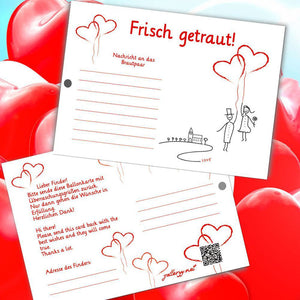 Frisch getraut!
Nachricht an das
Brautpaar
Lieber Finder!
Bitte sende diese Ballonkarte mit
Überraschungsgrüßen zurück.
Nur dann gehen die Wünsche in
Erfüllung
Herzlichen Dank!
Hi there!
Please send this card back with the
best wishes and they will come
true
Thanks a lot.
Adresse des Finders